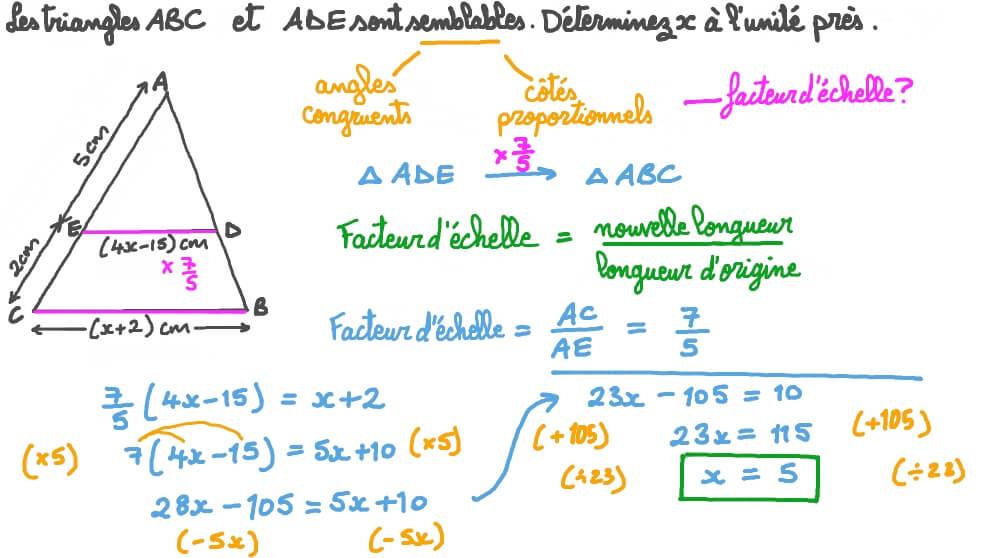 Les triangles ABC et ADE sont semblables. Déterminez x à l'unité près.
angles congruents
côtés proportionnels
— facteur d'échelle?
A
5 cm
E
D
2 cm
(4x-15) cm
× 7/5
C
B
(x+2) cm
× 7/5
△ ADE → △ ABC
Facteur d'échelle = nouvelle longueur / longueur d'origine
Facteur d'échelle = AC/AE = 7/5
7/5 (4x-15) = x+2
(×5) 7(4x-15) = 5x+10 (×5)
28x-105 = 5x+10
(-5x) (-5x)
23x - 105 = 10
(+105) (+105)
23x = 115
(÷23) (÷23)
x = 5